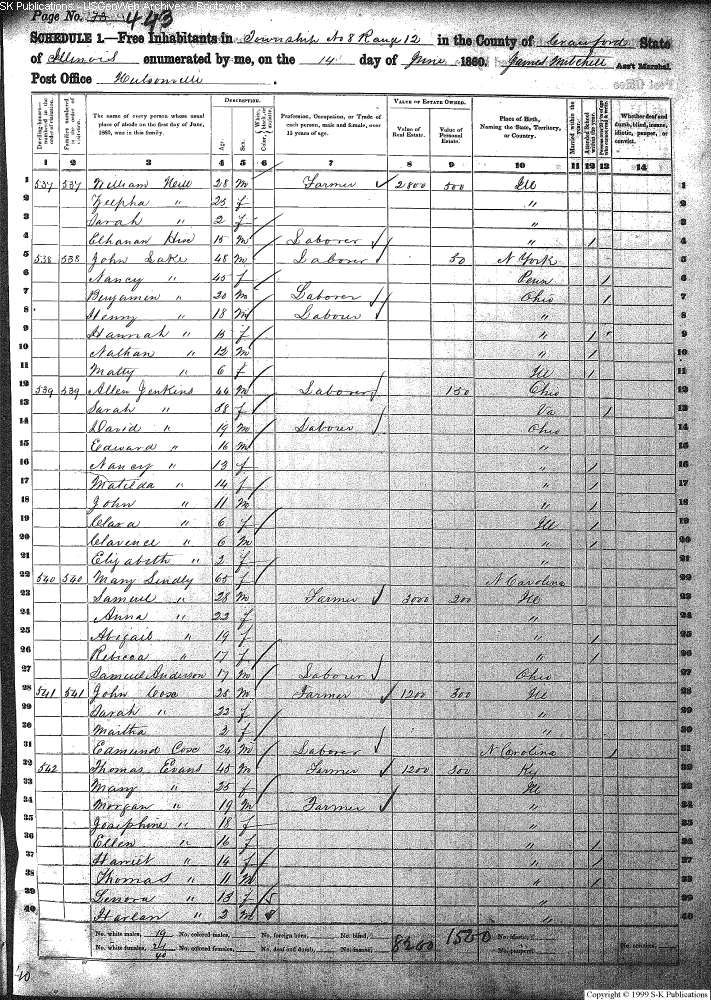 SK Publications - USGenWeb Archives - Rootsweb
Page No. 73 443
SCHEDULE 1.—Free Inhabitants in Township No 8 Range 12 in the County of Crawford State
of Illinois enumerated by me, on the 14 day of June 1860. James Mitchell Ass't Marshal.
Post Office Hutsonville.
DESCRIPTION. VALUE OF ESTATE OWNED.
Dwelling-houses—numbered in the order of visitation. Families numbered in the order of visitation. The name of every person whose usual place of abode on the first day of June, 1860, was in this family. Age. Sex. Color, Profession, Occupation, or Trade of each person, male and female, over 15 years of age. Value of Real Estate. Value of Personal Estate. Place of Birth, Naming the State, Territory, or Country. Married within the year. Attended School within the year. Whether deaf and dumb, blind, insane, idiotic, pauper, or convict.
1 2 3 4 5 6 7 8 9 10 11 12 13 14
1 537 537 William Neill 28 m Farmer 2800 500 Ill 1
2 " 25 f " 2
3 Sarah " 2 f " 3
4 Elhanan Hix 15 m Laborer " / 4
5 538 538 John Lake 48 m Laborer 50 N York 5
6 Nancy " 45 f Penn / 6
7 Benjamin " 20 m Laborer Ohio / 7
8 Henry " 18 m Laborer " 8
9 Hannah " 15 f " / 9
10 Nathan " 12 m " / 10
11 Matty " 6 f Ill / 11
12 539 539 Allen Jenkins 44 m Laborer 150 Ohio 12
13 Sarah " 38 f Va / 13
14 David " 19 m Laborer Ohio 14
15 Edward " 16 m " 15
16 Nancy " 13 f " / 16
17 Matilda " 14 f " / 17
18 John " 11 m " / 18
19 Clara " 6 f Ill / 19
20 Clarence " 6 m " / 20
21 Elizabeth " 2 f " 21
22 540 540 Mary Lindly 65 f N Carolina 22
23 Samuel " 28 m Farmer 3000 200 Ill 23
24 Anna " 22 f " 24
25 Abigail " 19 f " / 25
26 Rebecca " 17 f " / 26
27 Samuel Anderson 17 m Laborer Ohio 27
28 541 541 John Cox 25 m Farmer 1200 300 Ill 28
29 Sarah " 22 f " 29
30 Martha " 2 f " 30
31 Edmund Cox 24 m Laborer N Carolina / 31
32 542 Thomas Evans 45 m Farmer 1200 300 Ky 32
33 Mary " 25 f Ill 33
34 Morgan " 19 m Farmer " 34
35 Josephine " 18 f " 35
36 Ellen " 16 f " / 36
37 Harriet " 14 f " / 37
38 Thomas " 11 m " / 38
39 Lenora " 13 f " 39
40 Harlan " 2 m " 40
No. white males, 19 No. colored males, No. foreign born, No. blind, 8200 1500 No. idiotic,
No. white females, 21 No. colored females, No. deaf and dumb, No. insane, No. paupers, No. convicts,
40
Copyright © 1999 S-K Publications